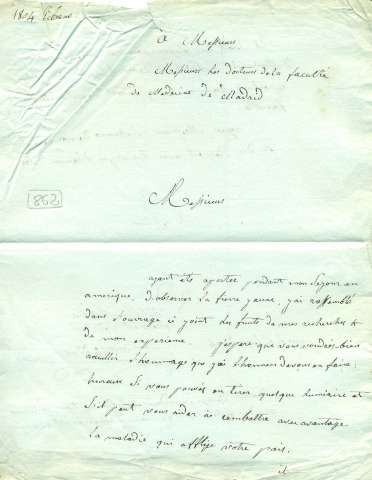 1804
à Messieurs
Messieurs les docteurs de la faculté
de Medecine de Madrid
862
Messieurs
ayant été aportée pendant mon sejour en
amerique, d'observer la fievre jaune, j'ai rassemblé
dans l'ouvrage ci joint les fruits de mes recherches &
de mon experience. j'espere que vous voudrés bien
accuillir l'hommage que j'ai l'honneur de vous en faire;
heureux si vous pouvés en tirer quelque lumiere et
s'il peut vous aider à combattre avec avantage
la maladie qui afflige votre païs.
il